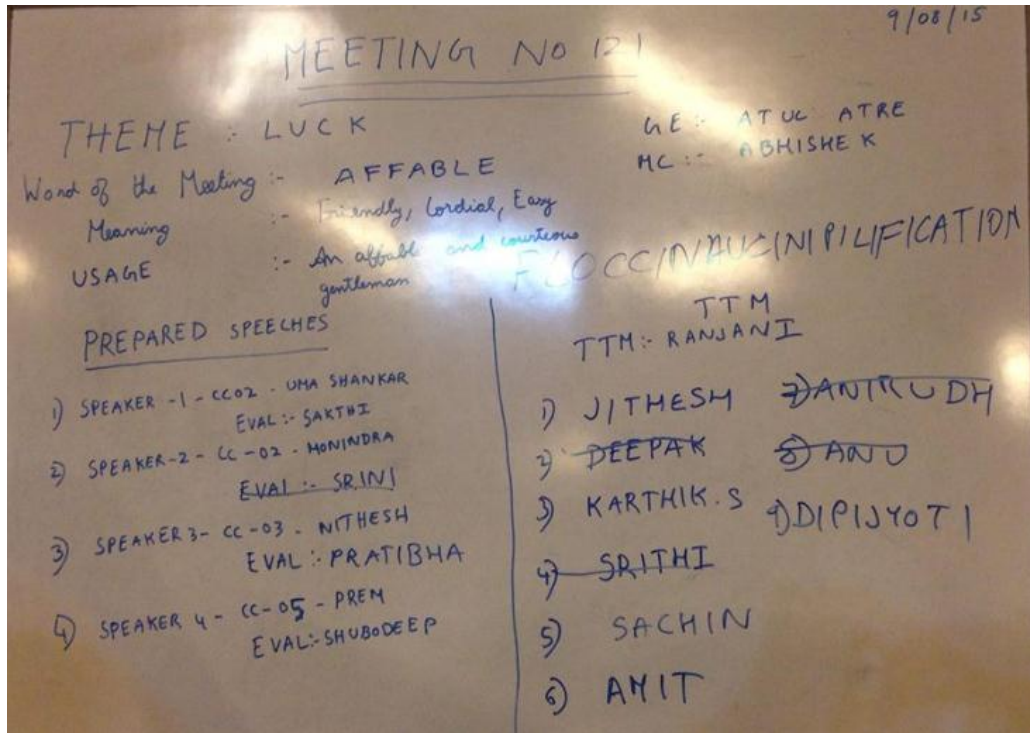 9/08/15
MEETING NO 121
THEME : LUCK
GE :- ATUL ATRE
MC :- ABHISHEK
Word of the Meeting :- AFFABLE
Meaning :- Friendly, Cordial, Easy
USAGE :- An affable and courteous
gentleman
FLOCCINAUCINIPILIFICATION
PREPARED SPEECHES
1) SPEAKER -1 - CC02 - UMA SHANKAR
EVAL :- SAKTHI
2) SPEAKER-2 - CC-02 - MONINDRA
EVAL :- SRINI
3) SPEAKER 3- CC-03 - NITHESH
EVAL :- PRATIBHA
4) SPEAKER 4 - CC-05 - PREM
EVAL:- SHUBODEEP
TTM
TTM :- RANJANI
1) JITHESH
2) DEEPAK
3) KARTHIK.S
4) SRITHI
5) SACHIN
6) AMIT
7) ANIRUDH
8) ANU
9) DIPIJYOTI